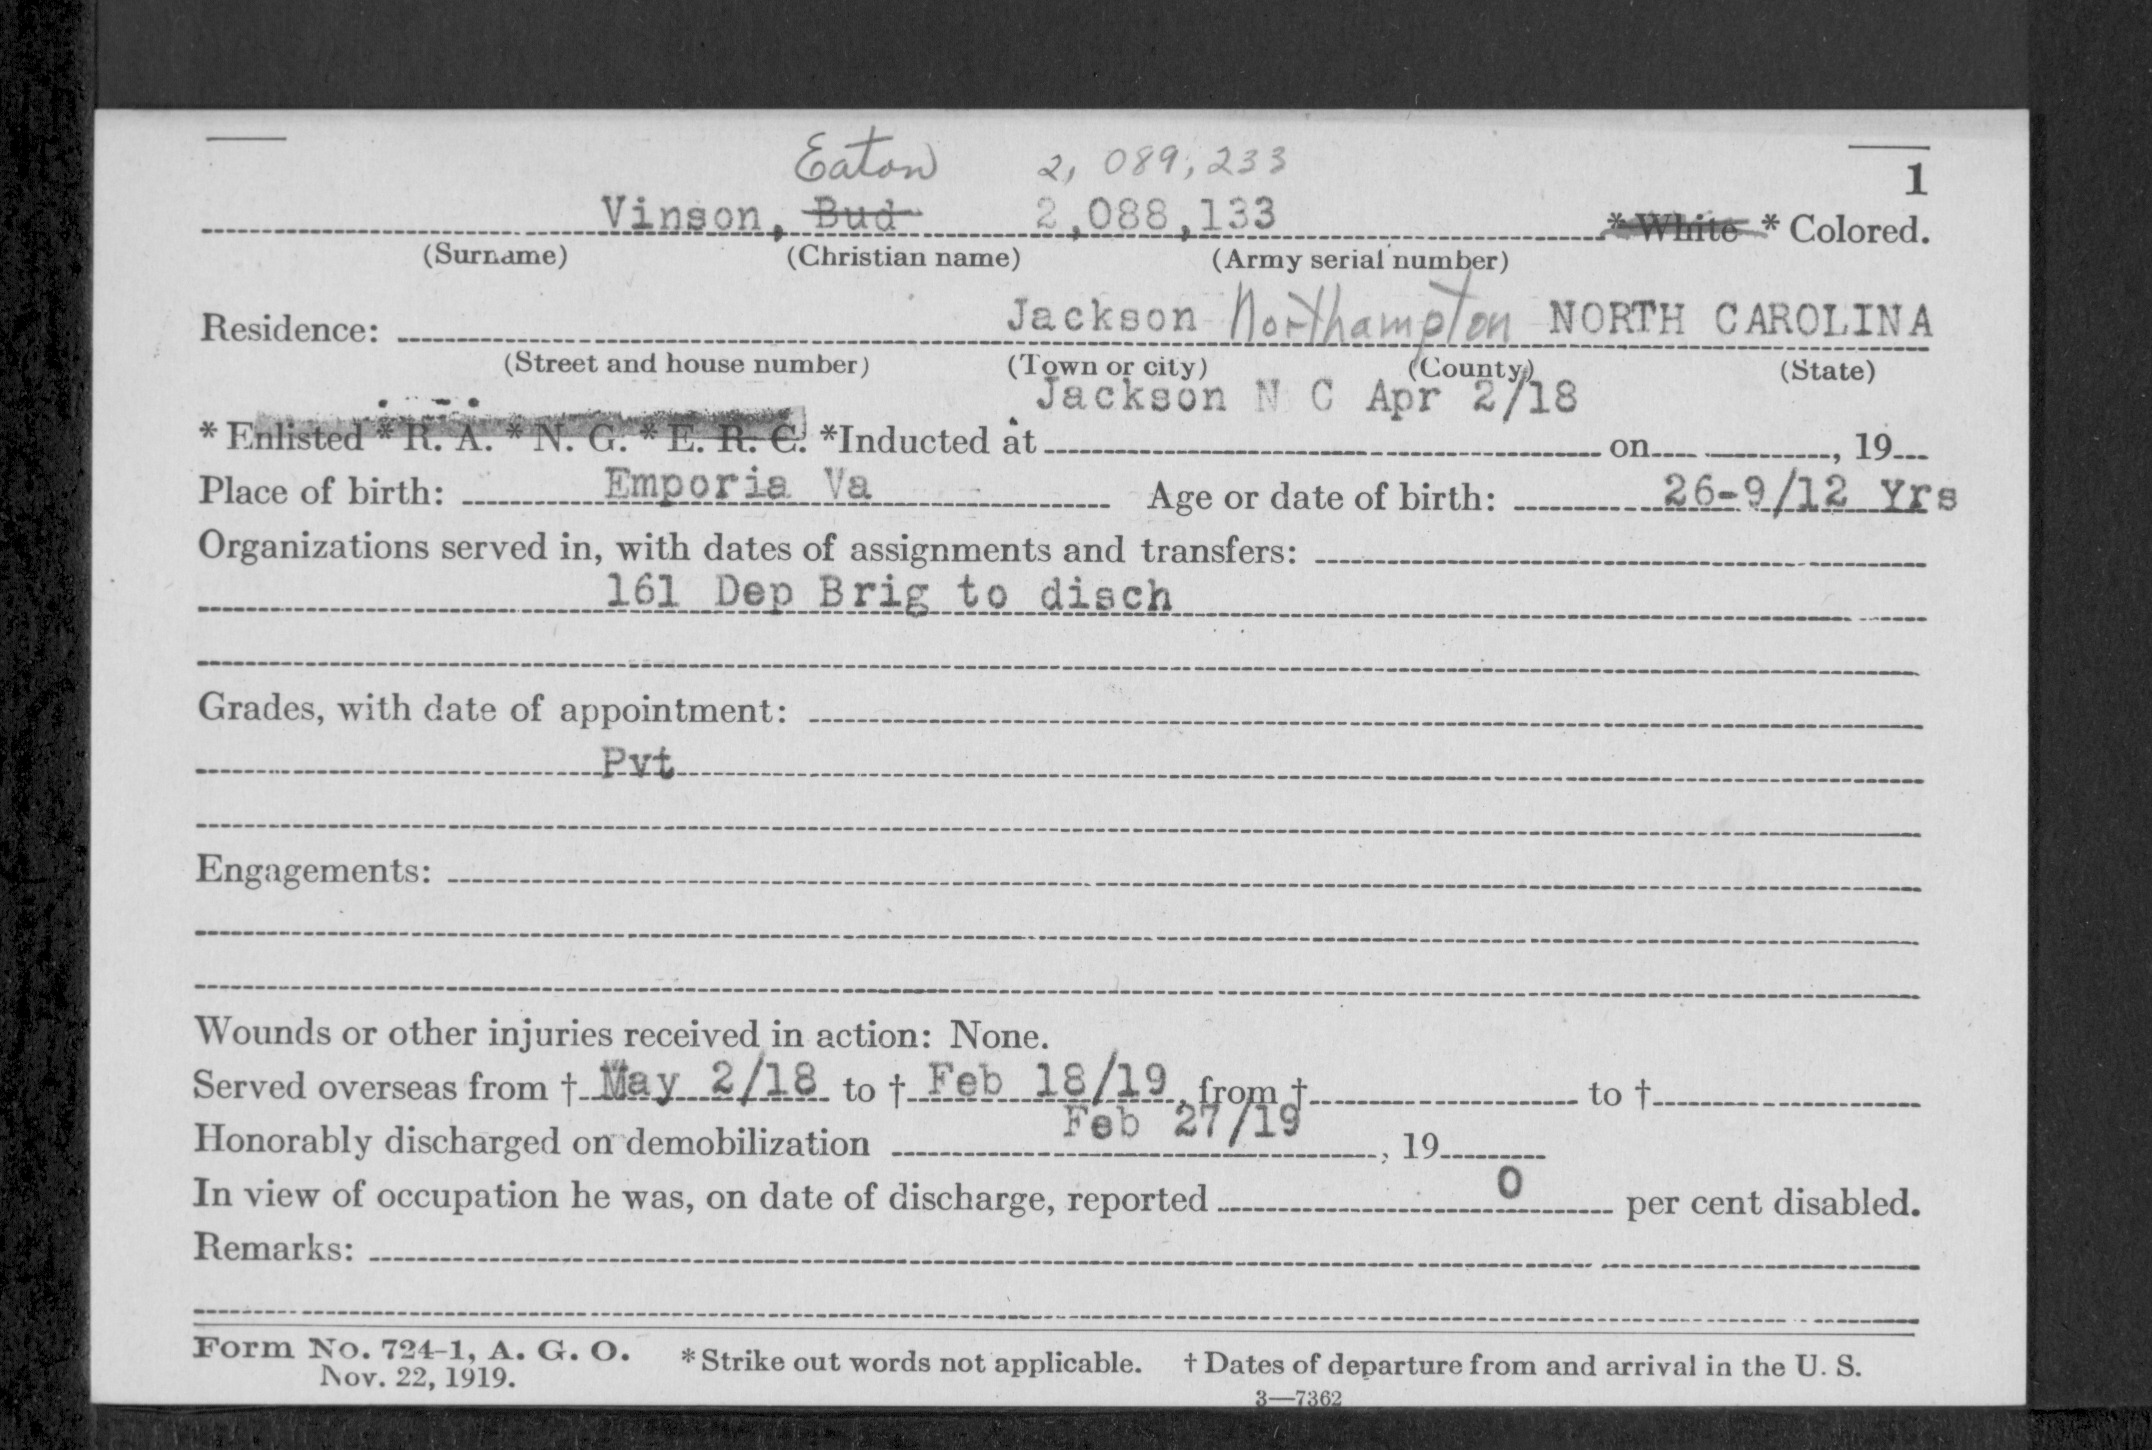 Eaton 2,089,233
1
Vinson, Bud 2,088,133 * White * Colored.
(Surname) (Christian name) (Army serial number)
Residence: Jackson Northampton NORTH CAROLINA
(Street and house number) (Town or city) (County) (State)
Jackson N C Apr 2/18
* Enlisted * R. A. * N. G. * E. R. C. *Inducted at on , 19
Place of birth: Emporia Va Age or date of birth: 26-9/12 Yrs
Organizations served in, with dates of assignments and transfers:
161 Dep Brig to disch
Grades, with date of appointment:
Pvt
Engagements:
Wounds or other injuries received in action: None.
Served overseas from † May 2/18 to † Feb 18/19, from † to †
Feb 27/19
Honorably discharged on demobilization , 19
In view of occupation he was, on date of discharge, reported 0 per cent disabled.
Remarks:
Form No. 724-1, A. G. O. * Strike out words not applicable. † Dates of departure from and arrival in the U. S.
Nov. 22, 1919.
3—7362